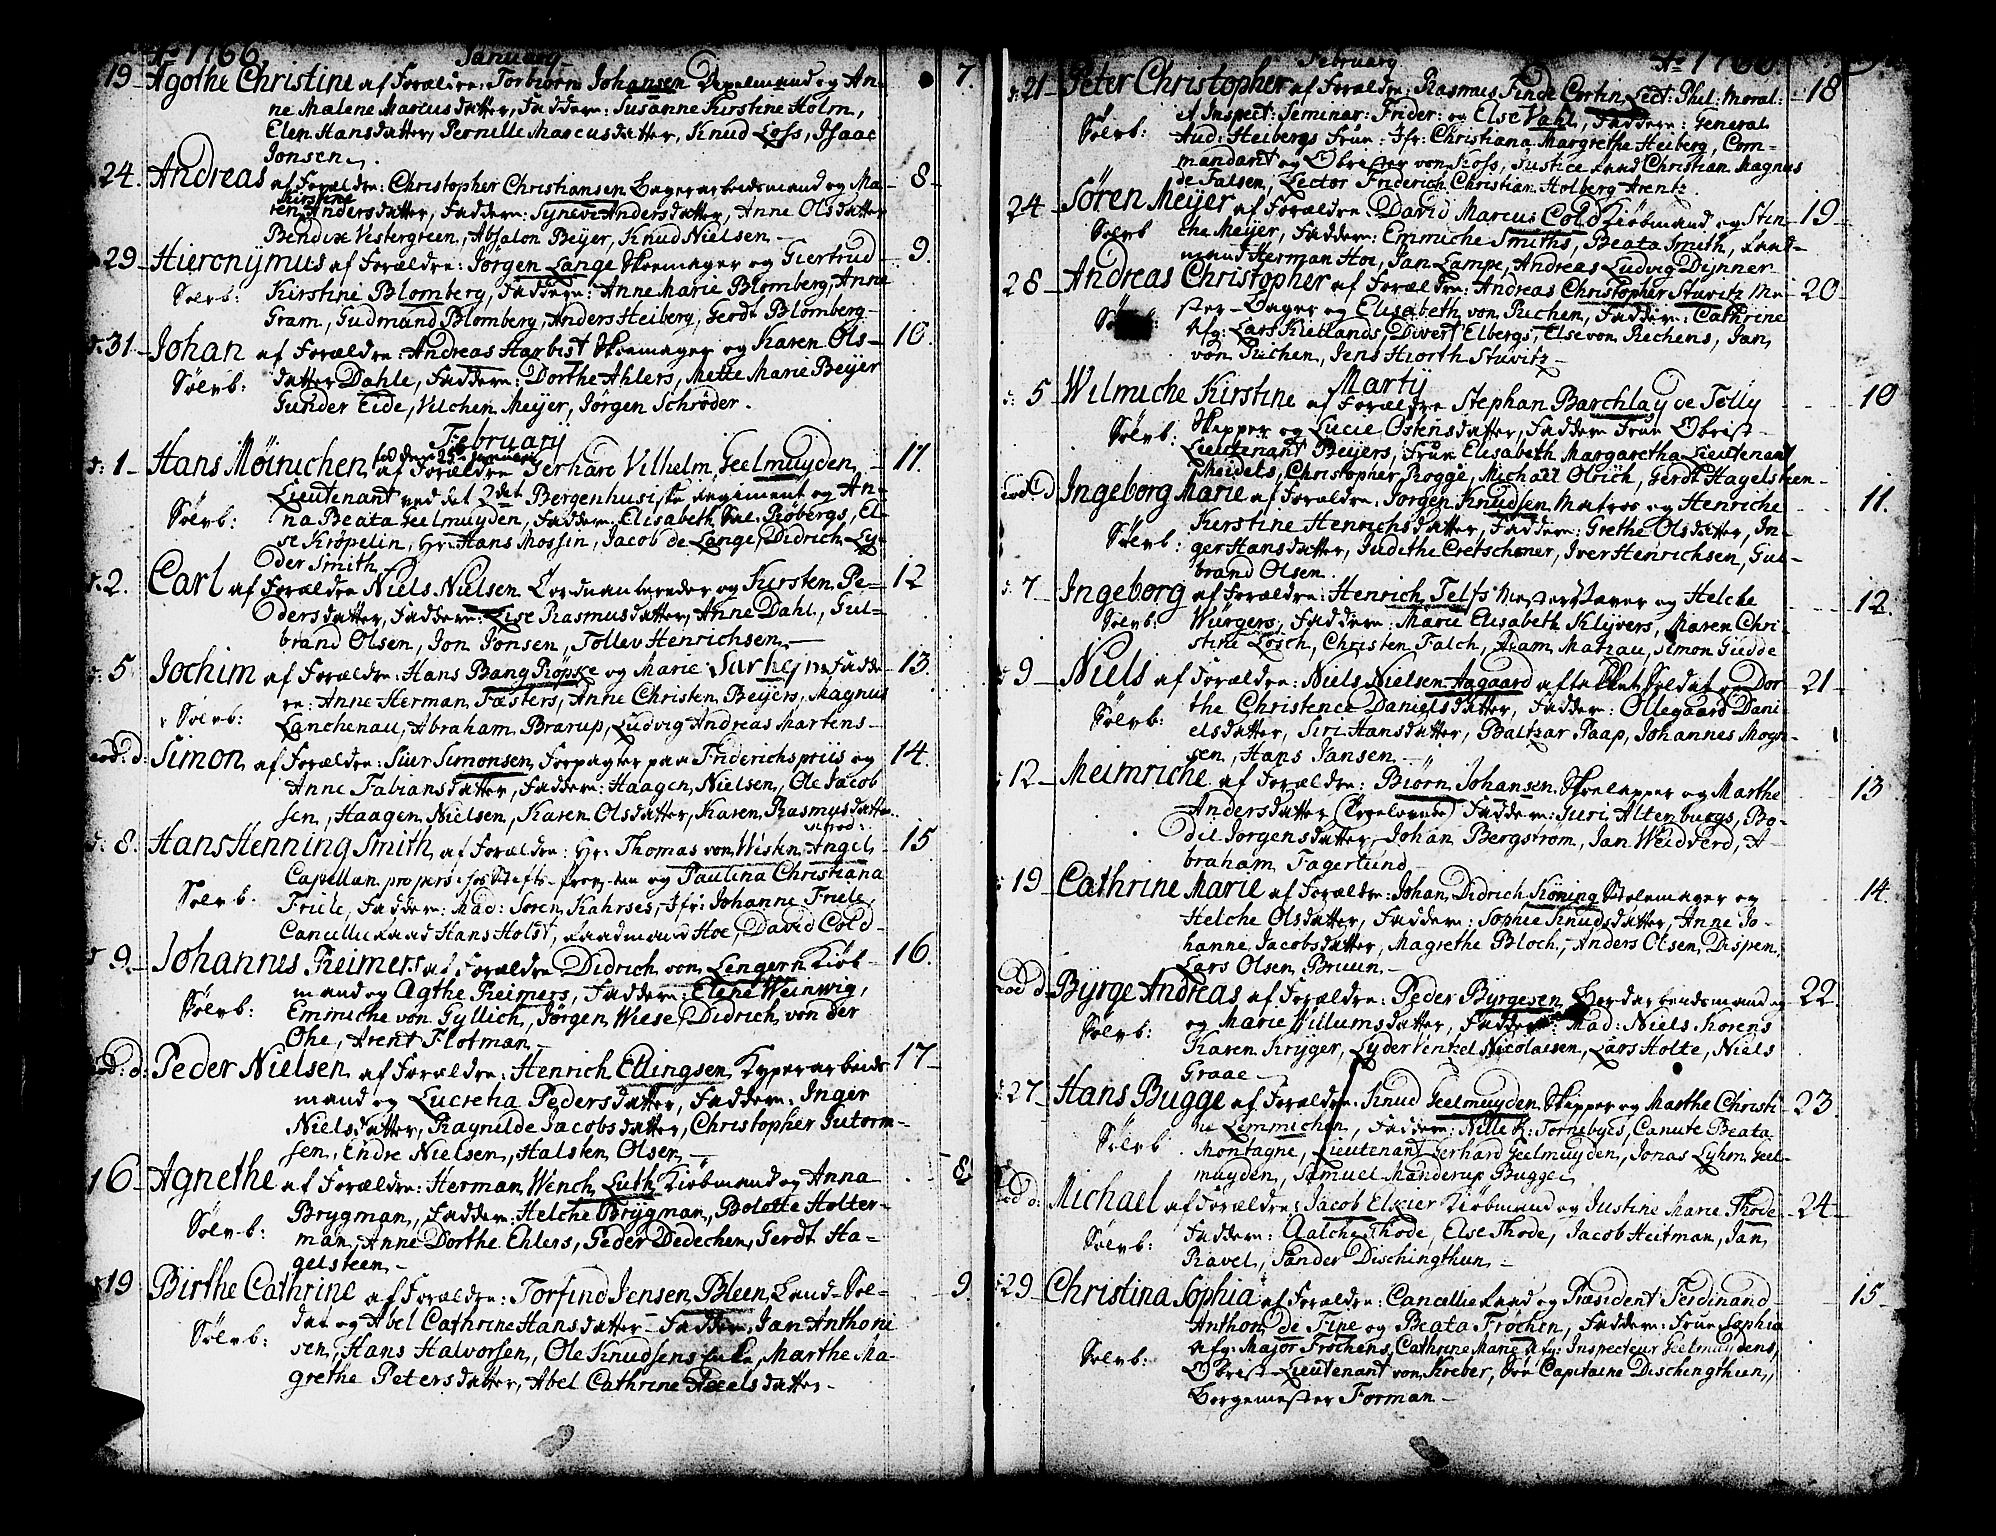 Ao 1766. January
19 Agothe Christine af Forældre: Torbiörn Johansen Degelmand og An- 7.
ne Malene Marcusdatter, Faddere: Susanne Kirstine Holm,
Elen Hansdatter, Pernille Marcusdatter, Knud Loss, Isaac
Jonsen.
24. Andreas af Forældre: Christopher Christiansen Bagerarbeidsmand og Ma- 8.
ren Kirstine Andersdatter, Faddere: Synevi Andersdatter, Anne Olsdatter
Bendix Vestergreen, Absalon Beijer, Knud Nielsen
29 Hieronijmus af Forældre: Jørgen Lange Skoemager og Giertrud 9.
Sølvb: Kirstine Blomberg, Faddere: Anne Marie Blomberg, Anne
Gram, Gudmand Blomberg, Anders Heiberg, Gerdt Blomberg
31 Johan af Forældre: Andreas Harbist Skoemager og Karen Ols- 10.
Sølvb: datter Dahle, Faddere: Dorthe Ahlers, Mette Marie Beijer
Gunder Eide, Vilchen Meijer, Jørgen Schrøder.
Februarij
1 Hans Møinichen fød den 25de Januarii af Forældre Gerhard Vilhelm Geelmuyden 11.
Lieutenant ved det 2det Bergenhusiske Regiment og An-
Sølvb: na Beata Geelmuyden, Faddere: Elisabeth Sal. Røbergs, El-
se Krøpelin, Hr: Hans Mossin, Jacob de Lange, Didrich Ly-
der Smith
2. Carl af Forældre Niels Nielsen og Kirsten Pe- 12
dersdatter, Faddere: Lise Rasmusdatter, Anne Dahl, Gul-
brand Olsen, Jon Jonsen, Tollev Henrichsen
5 Jochim af Forældre: Hans Bang Röpke og Marie Fadde- 13.
re: Anne Herman Fæsters, Anne Christen Beijers, Magnus
Sølvb: Lanchenau, Abraham Brarup, Ludvig Andreas Martens
eod: d: Simon af Forældre: Siur Simonsen Forpagter paa Friderichspriis og 14.
Anne Fabiansdatter, Faddere: Haagen Nielsen, Ole Jacob
sen, Haagen Nielsen, Karen Olsdatter, Karen Rasmusdatter
8. Hans Henning Smith af Forældre: Hr: Thomas von Westen Angel 15
Capellan pro pers: og Paulina Christiana
Sølvb. Friele, Faddere: Mad: Søren Kahrses, Jfr: Johanne Friele,
Cancellie Raad Hans Holst, Raadmand Hoe, David Cold
9. Johannes Reimers af Forældre Didrich von Lengern Kiøb- 16.
mand og Agthe Reimers, Faddere: Elene Weinwig,
Sølvb: Emmiche von Gyllich, Jørgen Wiese, Didrich von der
Ohe, Arent Flotman
eod: d: Peder Nielsen af Forældre: Henrich Ellingsen Kyperarbeids 17
mand og Lucretia Pedersdatter, Faddere: Inger
Nielsdatter, Ragnilde Jacobsdatter, Christopher Gutorm-
sen, Endre Nielsen, Halsten Olsen
16 Agnethe af Forældre: Herman Wench Luth Kiøbmand og Anna 8
Brygman, Faddere: Helche Brygman, Bolette Holter-
Sølvb: man, Anne Dorthe Ehlers, Peder Dedechen, Gerdt Ha-
gelsteen
19 Birthe Cathrine af Forældre: Torfind Jensen Bleen Land-Sol- 9
dat og Abel Cathrine Hansdatter Faddere Jan Anthoni
Sølvb: sen, Hans Halvorsen, Ole Knudsens Enke, Marthe Ma-
grethe Petersdatter, Abel Cathrine datter
February Ao 1766
21 Peter Christopher af Forældre: Rasmus Finde Cortin Lect: Phil: Moral: 18
et Inspect: Seminar: Frider: og Else Vahl, Faddere: General
Sølvb: Aud: Heibergs Frue: Jfr: Christiana Margrethe Heiberg, Com-
mandant og Obrister von Hofs, Justice Raad Christian Magnus
de Falsen, Lector Friderich Christian Holberg Arentz
24 Søren Meijer af Forældre: David Marcus Cold Kiøbmand og Stin- 19
Sølvb che Meijer, Faddere: Emmiche Smiths, Beata Smith, Raad-
mand Herman Hoe, Jan Lampe, Andreas Ludvig Dynner
28 Andreas Christopher af Forældre: Andreas Christopher Stuvitz Me- 20
ster-Bager og Elisabeth von Puchen, Faddere: Cathrine
Sølvb: Afg: Lars Kiellands, Divert Elbergs, Else von Rechens, Jan
von Puchen, Jens Hiorth Stuvitz
Martij
5 Wilmiche Kirstine af Forældre Stephan Barchlay de Tolly 10
Sølvb: Skipper og Lucie Ostensdatter, Faddere Frue Obrist-
Lieutenant Beijers, Frue Elisabeth Margaretha Lieutenant
Meidels, Christopher Rogge, Michael Olrich, Gerdt Hagelsteen
eod d Ingeborg Marie af Forældre: Jørgen Knudsen Matros og Henriche 11.
Sølvb: Kirstine Henrichsdatter, Faddere: Grethe Olsdatter, In-
ger Hansdatter, Judithe Cretschmer, Iver Henrichsen, Gul-
brand Olsen.
7 Ingeborg af Forældre: Henrich Telfs og Helche 12.
Sølvb: Würgers, Faddere: Marie Elisabeth Klyvers, Maren Chri-
stine Losch, Christen Falch, Adam Matzau, Simon Giedde
9 Niels af Forældre: Niels Nielsen Aagaard aftakket Soldat og Dor 21
Sølvb: the Christence Danielsdatter, Faddere: Ollegaard Dani-
elsdatter, Siri Hansdatter, Baltzar Paap, Johannes Mogn-
sen, Hans Jansen
12 Meimriche af Forældre: Biørn Johansen Skoelapper og Marthe 13
Andersdatter (Troelovede) Faddere: Guri Altenburgs, Bo-
dil Jørgensdatter, Johan Bergstrøm, Jan Weidverd, A-
braham Fagerlund
19 Cathrine Marie af Forældre: Johan Didrich Køning Stolemager og 14.
Helche Olsdatter, Faddere: Sophie Knudsdatter, Anne Jo-
hanne Jacobsdatter, Magrethe Bloch, Anders Olsen Dispen,
Lars Olsen Bruun
eod d Byrge Andreas af Forældre: Peder Byrgesen og 22.
Sølvb: og Marie Willumsdatter, Faddere: Mad: Niels Korens
Karen Kryger, Lyder Venkel Nicolaisen, Lars Holte, Niels
Graae
27 Hans Bugge af Forældre: Knud Geelmuyden Skipper og Marthe Christi 23.
Sølvb ne Lemmichen, Faddere: Nille H: Tornebyes, Canute Beata
Montagne, Lieutenant Gerhard Geelmuyden, Jonas Lyhm Geel-
muyden, Samuel Manderup Bugge
eod d: Michael af Forældre: Jacob Elster Kiøbmand og Justine Marie Thode 24
Sølvb: Faddere: Aalche Thode, Else Thode, Jacob Heitman, Jan
Ravel, Sander Dischingthun
29 Christina Sophia af Forældre: Cancellie Raad og Præsident Ferdinand 15
Anthon de Fine og Beata Frøchen, Faddere: Frue Sophia
Sølvb: Afg: Major Frochens, Cathrine Marie Afg: Inspecteur Geelmuydens,
Obrist-Lieutenant von Kreber, Capitaine Dischingthun,
Borgemester Forman